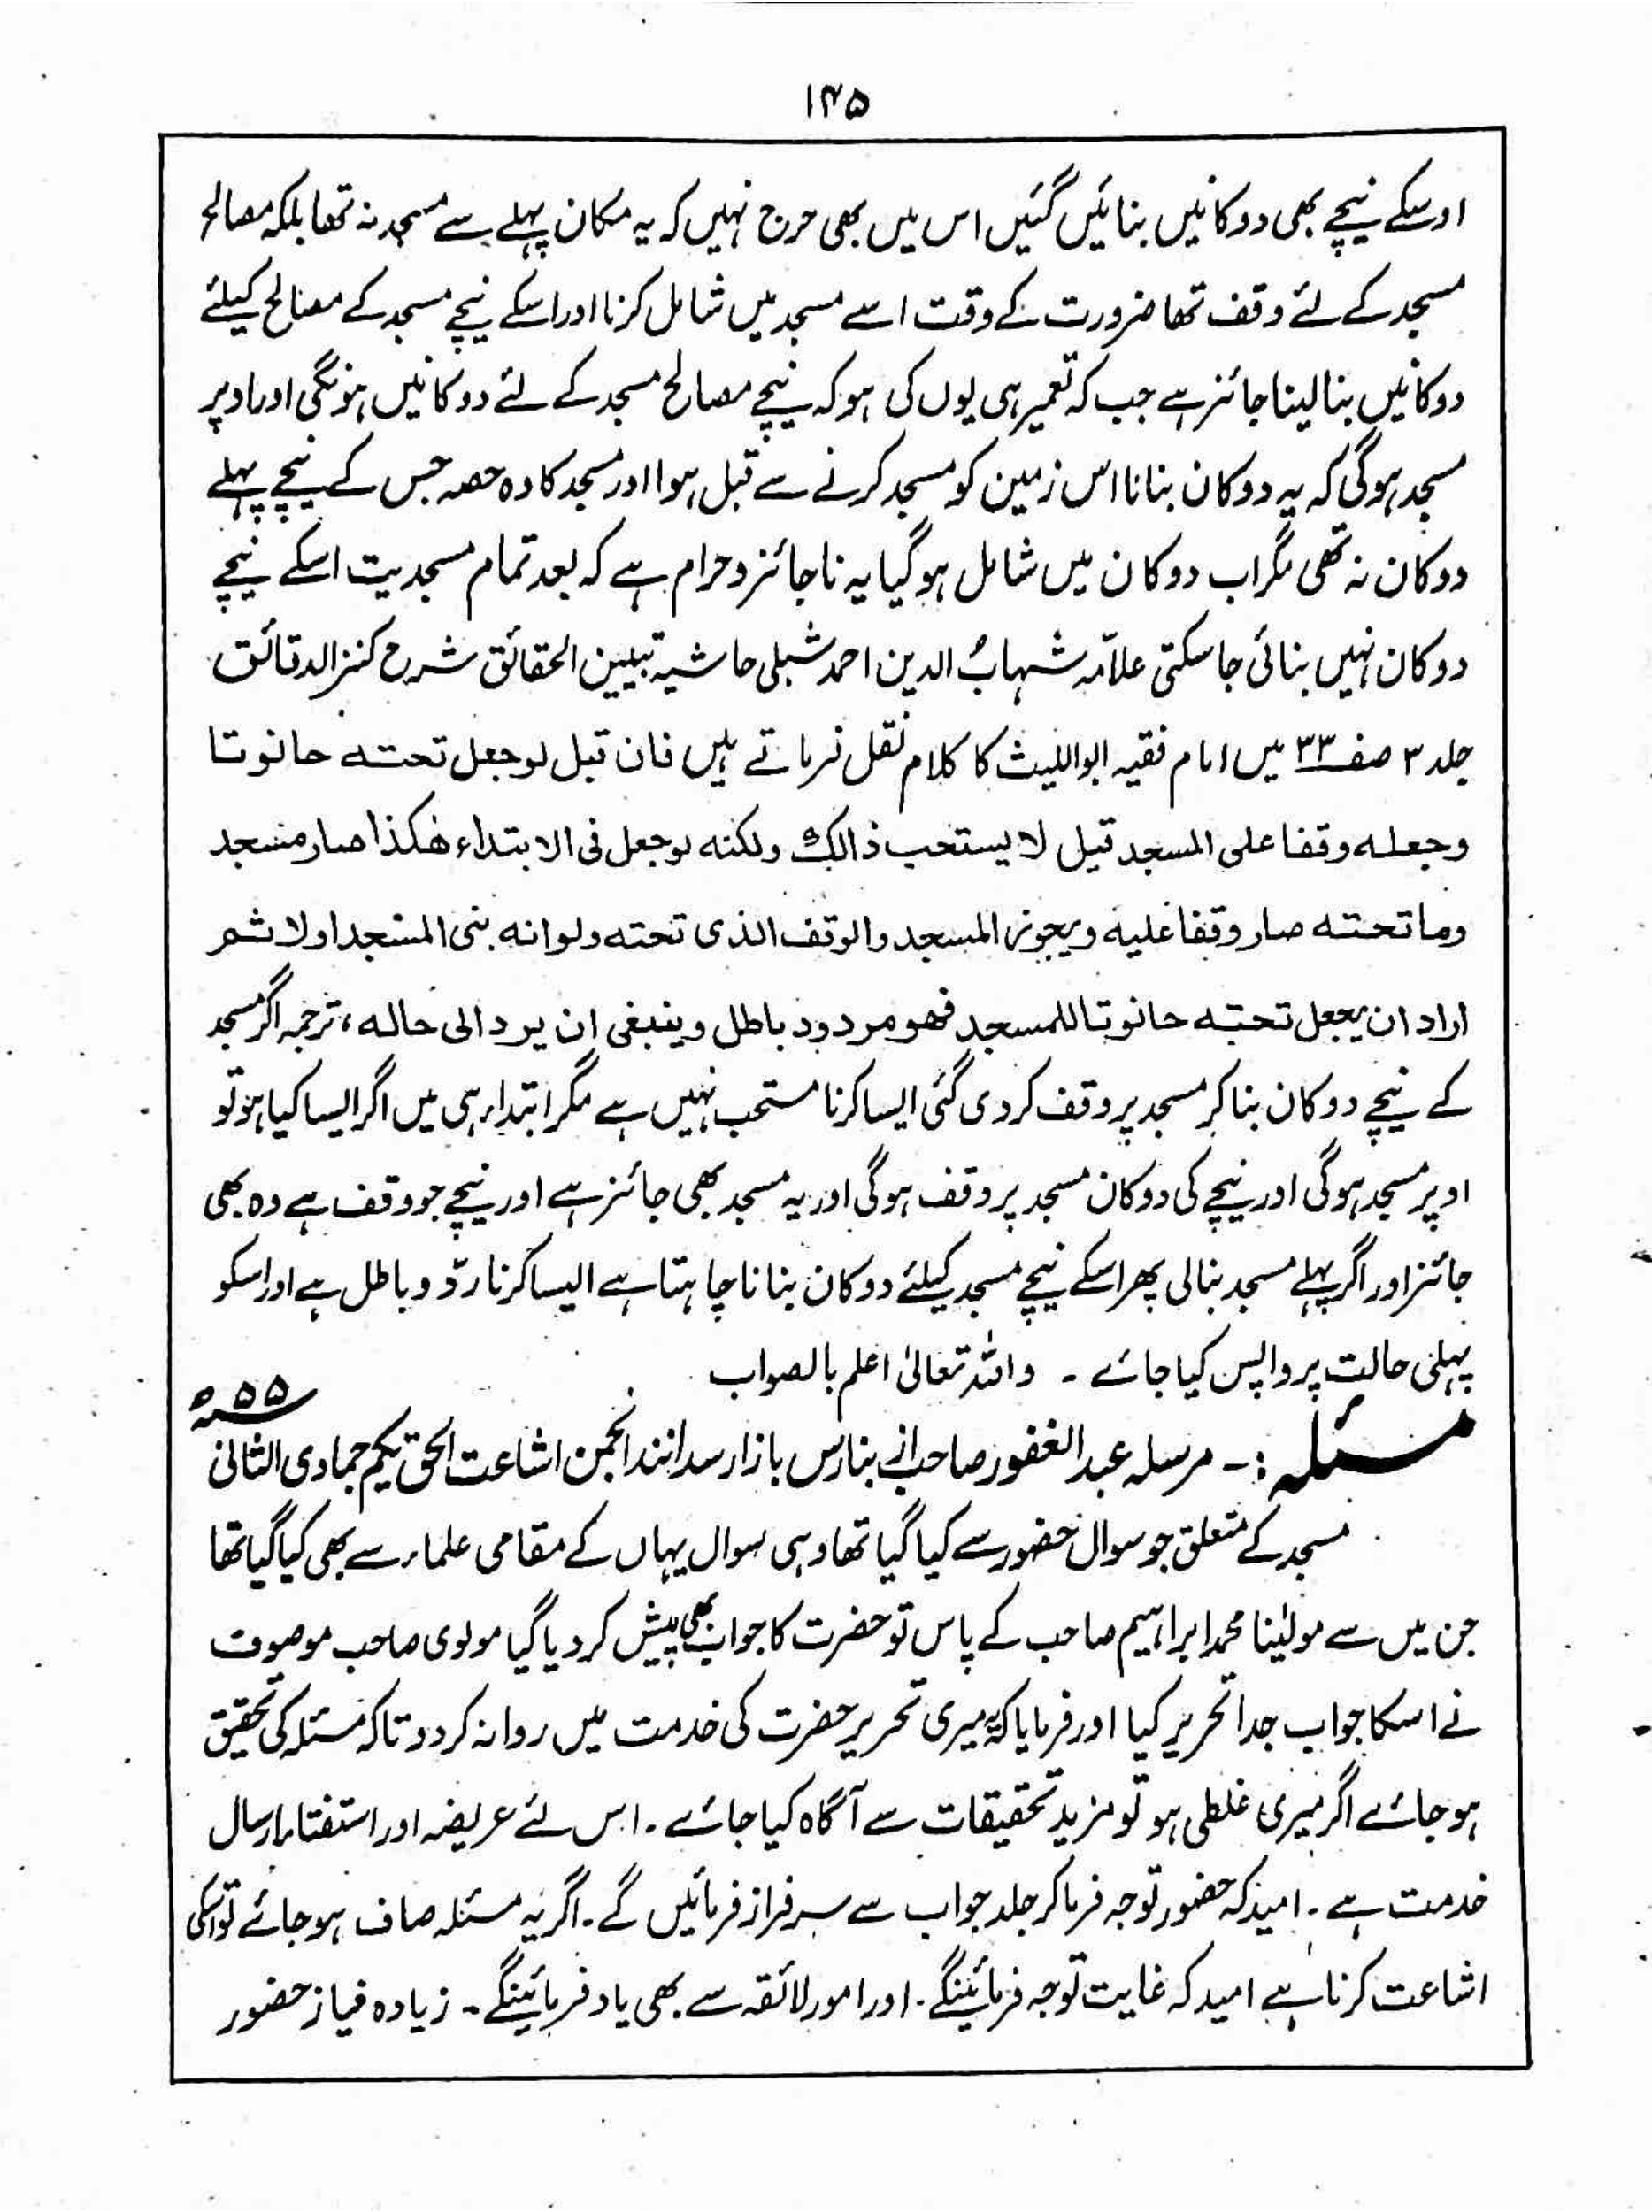 ۱۴۵
اور سکے نیچے بھی دوکانیں بنائیں گئیں اس میں بھی حرج نہیں کہ یہ مکان پہلے سے مسجد نہ تھا بلکہ مصالح
مسجد کے لئے وقف تھا ضرورت کے وقت اسے مسجد میں شامل کرنا اور اسکے نیچے مسجد کے مصالح کیلئے
دوکانیں بنا لینا جائز ہے جب کہ تعمیر ہی یوں کی ہو کہ نیچے مصالح مسجد کے لئے دوکانیں ہونگی اور اوپر
مسجد ہوگی کہ یہ دوکان بنانا اس زمین کو مسجد کرنے سے قبل ہوا اور مسجد کا وہ حصہ جس کے نیچے پہلے
دوکان نہ تھی مگر اب دوکان میں شامل ہو گیا یہ ناجائز و حرام ہے کہ بعد تمام مسجدیت اسکے نیچے
دوکان نہیں بنائی جا سکتی علامہ شہابُ الدین احمد شبلی حاشیہ تبیین الحقائق شرح کنز الدقائق
جلد ۳ صفـ۳۳ میں امام فقیہ ابو اللیث کا کلام نقل فرماتے ہیں فان قیل لو جعل تحتہ حانوتا
وجعلہ وقفا علی المسجد قیل لا یستحب ذالک ولکنہ لو جعل فی الابتداء ھکذا صار مسجد
وما تحتہ صار وقفا علیہ ویجوز المسجد والوقف الذی تحتہ ولو انہ بنی المسجد اولا ثم
اراد ان یجعل تحتہ حانوتا للمسجد فھو مردود باطل وینبغی ان یرد الی حالہ ، ترجمہ اگر مسجد
کے نیچے دوکان بنا کر مسجد پر وقف کر دی گئی ایسا کرنا مستحب نہیں ہے مگر ابتداء ہی میں اگر ایسا کیا ہو تو
اوپر مسجد ہوگی اور نیچے کی دوکان مسجد پر وقف ہوگی اور یہ مسجد بھی جائز ہے اور نیچے جو وقف ہے وہ بھی
جائز اور اگر پہلے مسجد بنالی پھر اسکے نیچے مسجد کیلئے دوکان بنانا چاہتا ہے ایسا کرنا ردّ و باطل ہے اور اسکو
پہلی حالت پر واپس کیا جائے ۔ واللہ تعالیٰ اعلم بالصواب
مسئلہ :۔ مرسلہ عبد الغفور صاحب از بنارس بازار سدانند انجمن اشاعت الحق یکم جمادی الثانی ۵۵ھ
مسجد کے متعلق جو سوال حضور سے کیا گیا تھا وہی سوال یہاں کے مقامی علماء سے بھی کیا گیا تھا
جن میں سے مولٰینا محمد ابراہیم صاحب کے پاس تو حضرت کا جواب بھی پیش کر دیا گیا مولوی صاحب موصوف
نے اسکا جواب جدا تحریر کیا اور فرمایا کہ یہ میری تحریر حضرت کی خدمت میں روانہ کر دو تاکہ مسئلہ کی تحقیق
ہو جائے اگر میری غلطی ہو تو مزید تحقیقات سے آگاہ کیا جائے ۔ اس لئے عریضہ اور استفتاء ارسال
خدمت ہے ۔ امید کہ حضور توجہ فرما کر جلد جواب سے سرفراز فرمائیں گے ۔ اگر یہ مسئلہ صاف ہو جائے تو اسکی
اشاعت کرنا ہے امید کہ غایت توجہ فرمائینگے ۔ اور امور لائقہ سے بھی یاد فرمائینگے ۔ زیادہ نیاز حضور